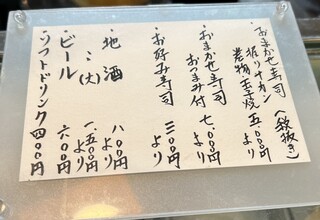 ・おまかせ寿司 (税抜き)
握りナカン
巻物玉子焼 五、〇〇〇円より
・おまかせ寿司
おつまみ付 七、〇〇〇円より
・お好み寿司 三〇〇円より
・地酒 八〇〇円より
・〃(大) 一、五〇〇円より
・ビール 六〇〇円
・ソフトドリンク 四〇〇円